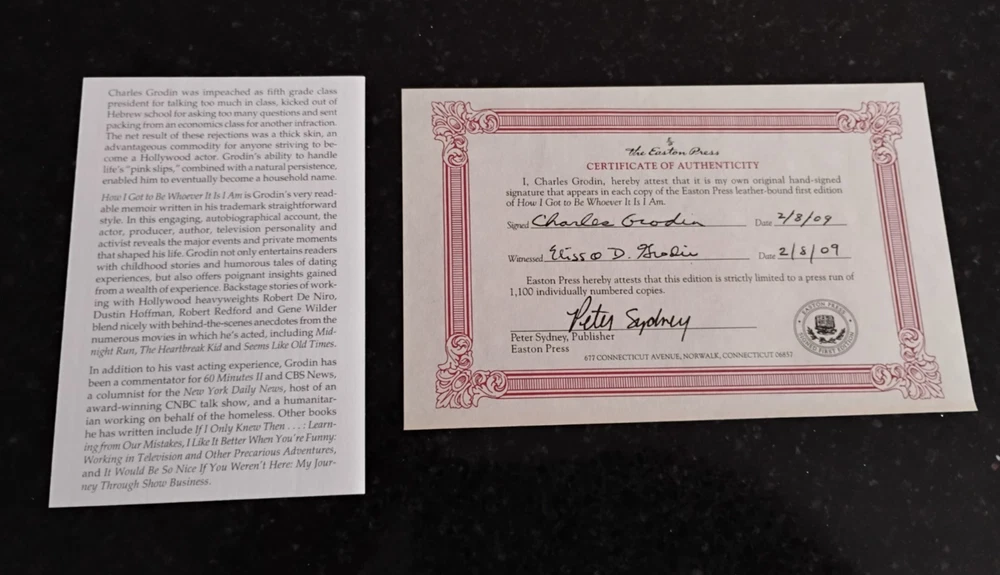 Charles Grodin was impeached as fifth grade class
president for talking too much in class, kicked out of
Hebrew school for asking too many questions and sent
packing from an economics class for another infraction.
The net result of these rejections was a thick skin, an
advantageous commodity for anyone striving to be-
come a Hollywood actor. Grodin's ability to handle
life's "pink slips," combined with a natural persistence,
enabled him to eventually become a household name.
How I Got to Be Whoever It Is I Am is Grodin's very read-
able memoir written in his trademark straightforward
style. In this engaging, autobiographical account, the
actor, producer, author, television personality and
activist reveals the major events and private moments
that shaped his life. Grodin not only entertains readers
with childhood stories and humorous tales of dating
experiences, but also offers poignant insights gained
from a wealth of experience. Backstage stories of work-
ing with Hollywood heavyweights Robert De Niro,
Dustin Hoffman, Robert Redford and Gene Wilder
blend nicely with behind-the-scenes anecdotes from the
numerous movies in which he's acted, including Mid-
night Run, The Heartbreak Kid and Seems Like Old Times.
In addition to his vast acting experience, Grodin has
been a commentator for 60 Minutes II and CBS News,
a columnist for the New York Daily News, host of an
award-winning CNBC talk show, and a humanitar-
ian working on behalf of the homeless. Other books
he has written include If I Only Knew Then . . . : Learn-
ing from Our Mistakes, I Like It Better When You're Funny:
Working in Television and Other Precarious Adventures,
and It Would Be So Nice If You Weren't Here: My Jour-
ney Through Show Business.
The Easton Press
CERTIFICATE OF AUTHENTICITY
I, Charles Grodin, hereby attest that it is my own original hand-signed
signature that appears in each copy of the Easton Press leather-bound first edition
of How I Got to Be Whoever It Is I Am.
Signed Charles Grodin Date 2/8/09
Witnessed Elissa D. Grodin Date 2/8/09
Easton Press hereby attests that this edition is strictly limited to a press run of
1,100 individually numbered copies.
Peter Sydney
Peter Sydney, Publisher
Easton Press
677 CONNECTICUT AVENUE, NORWALK, CONNECTICUT 06857
EASTON PRESS
SIGNED FIRST EDITION